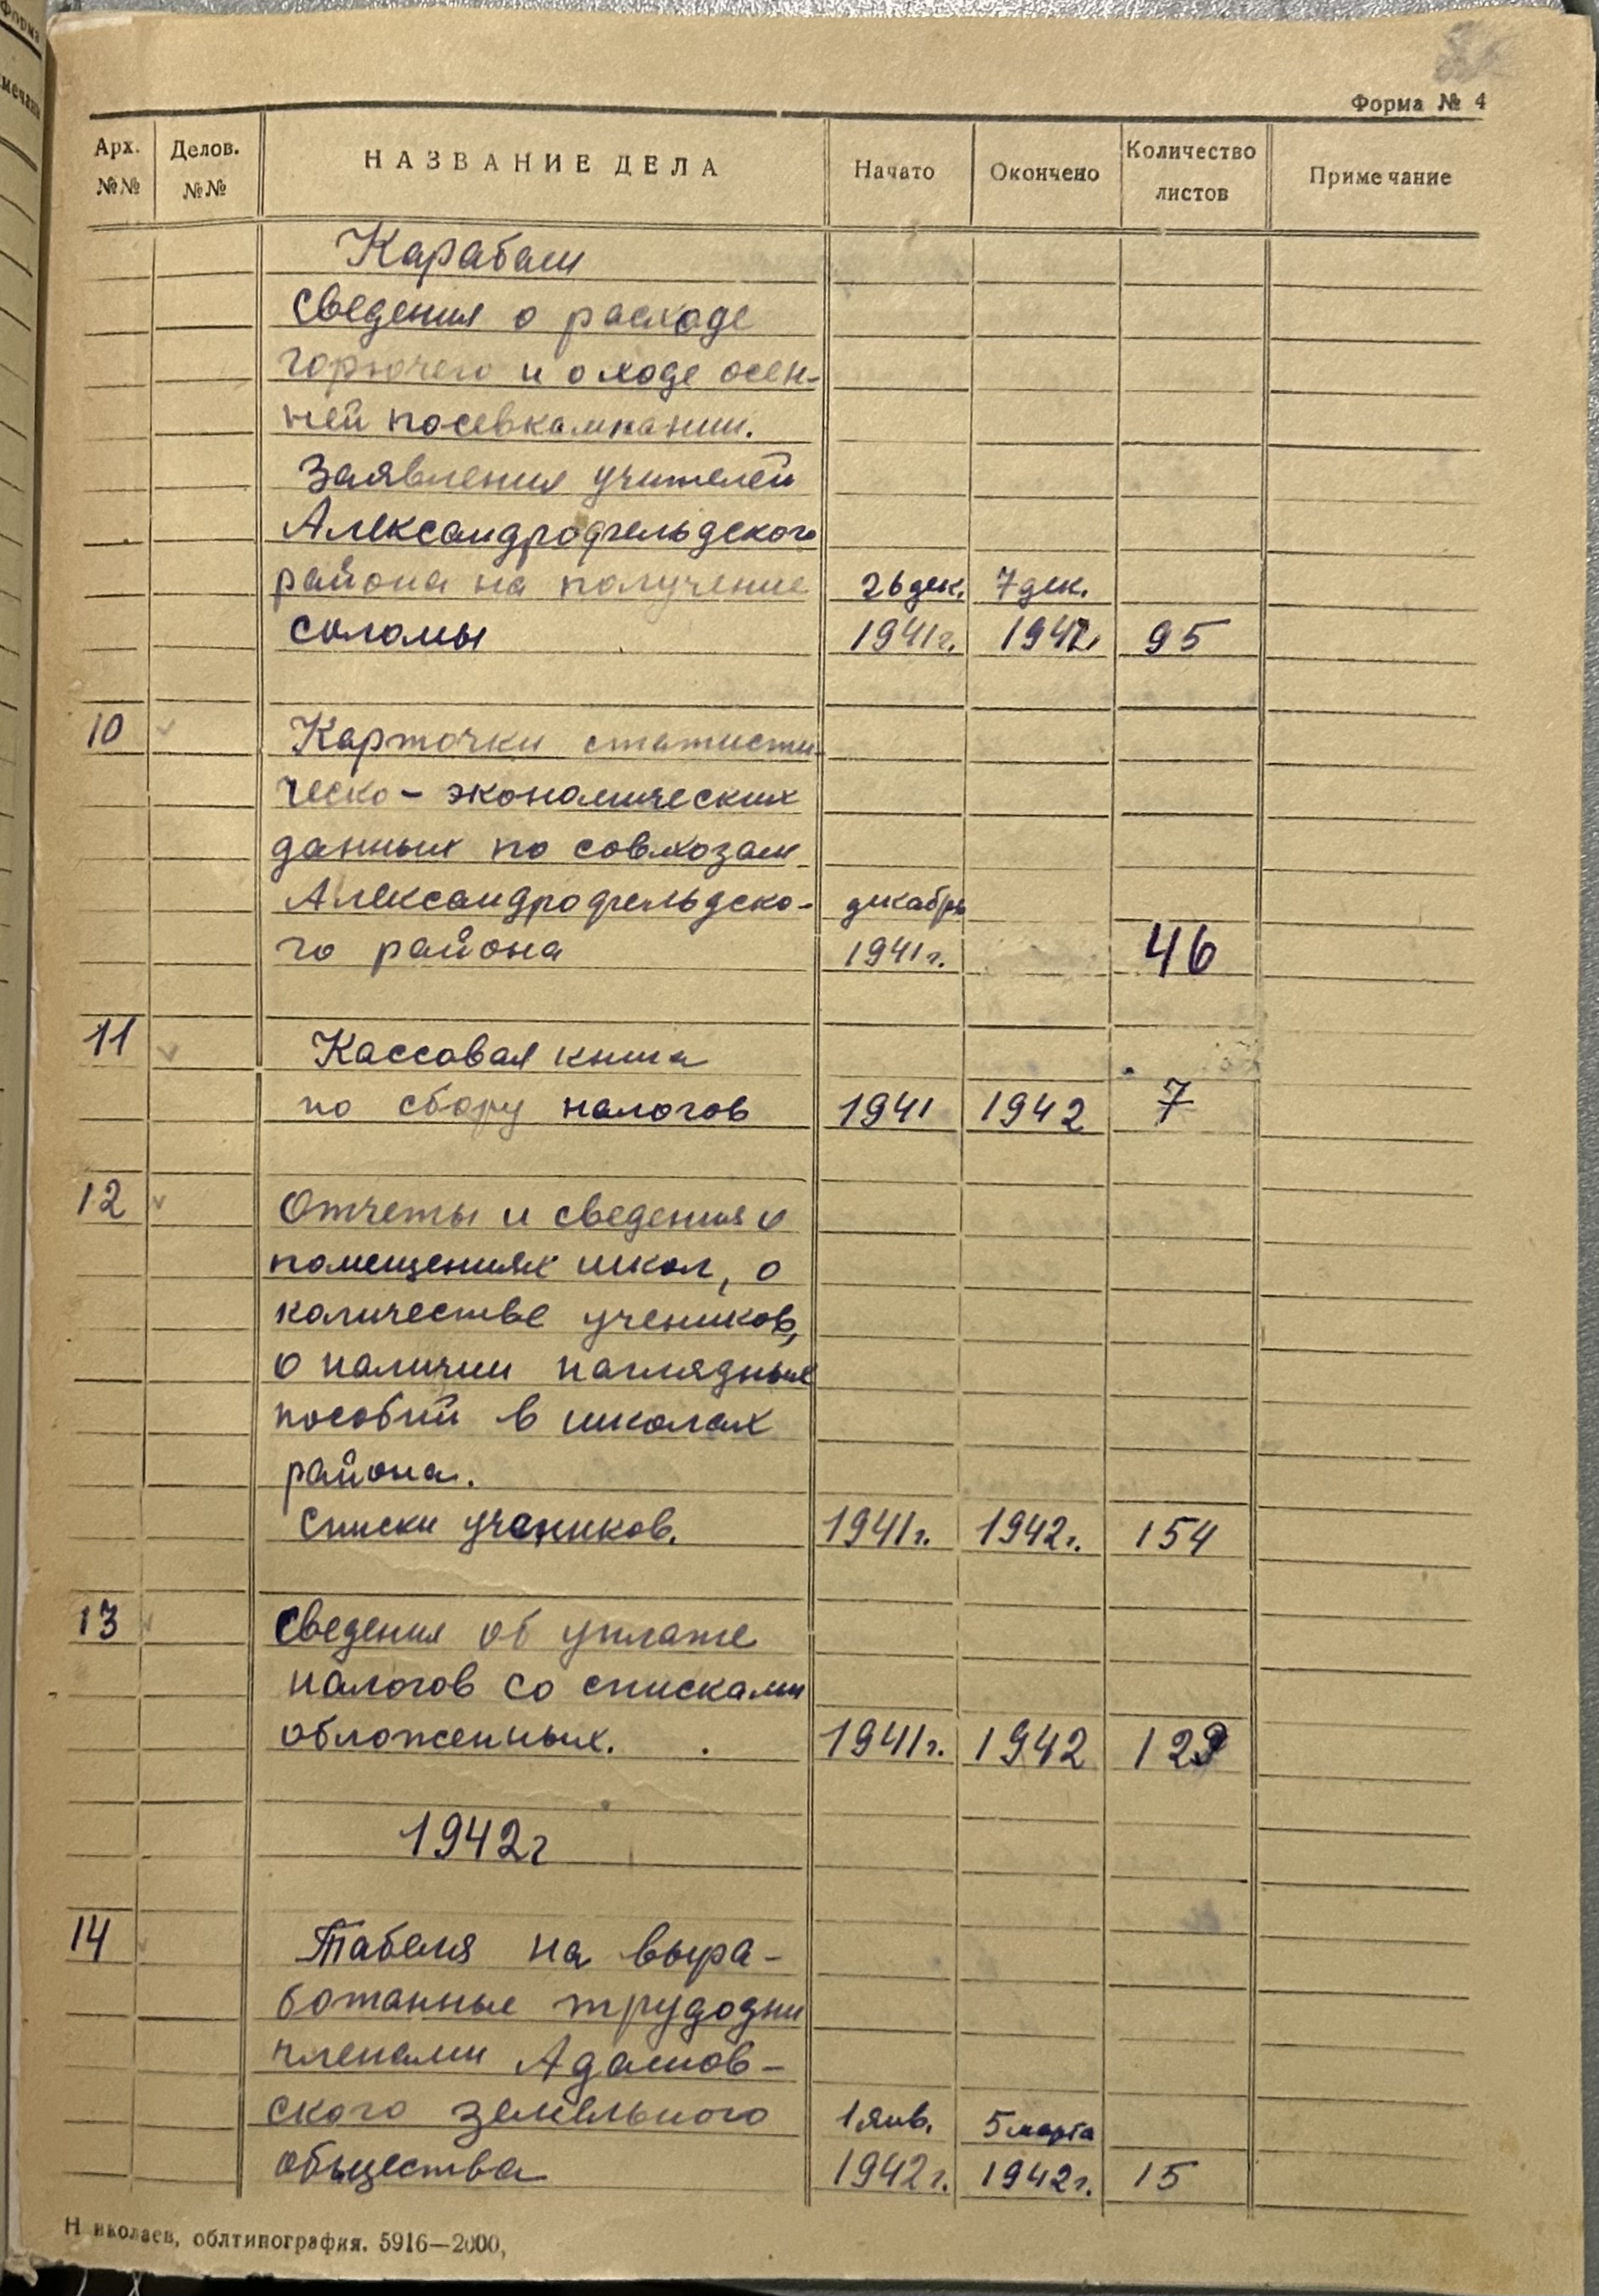 Форма № 4
Арх. №№ Делов. №№ НАЗВАНИЕ ДЕЛА Начато Окончено Количество листов Примечание
Карабаш
сведения о расходе
горючего и о ходе осен-
ней посевкампании.
Заявления учителей
Александрофельдского
района на получение 26 дек. 7 дек.
соломы 1941г. 1942. 95
10 Карточки статисти-
ческо-экономических
данных по совхозам
Александрофельдско- декабрь
го района 1941г. 46
11 Кассовая книга
по сбору налогов 1941 1942 7
12 Отчеты и сведения о
помещениях школ, о
количестве учеников,
о наличии наглядных
пособий в школах
района.
Списки учеников. 1941г. 1942г. 154
13 Сведения об уплате
налогов со списками
обложенных. 1941г. 1942 129
1942г
14 Табеля на выра-
ботанные трудодни
членами Адамов-
ского земельного 1 янв. 5 марта
общества 1942г. 1942г. 15
Николаев, облтипография. 5916—2000,